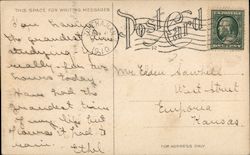 THIS SPACE FOR WRITING MESSAGES
Post Card
1910
Am having
the grandest time
studying
really for two
hours today.
Have had the
grandest time
of my life but
of course it had to
rain.
Ethel
Mr. Elden
West Street
Emporia
Kansas.
FOR ADDRESS ONLY